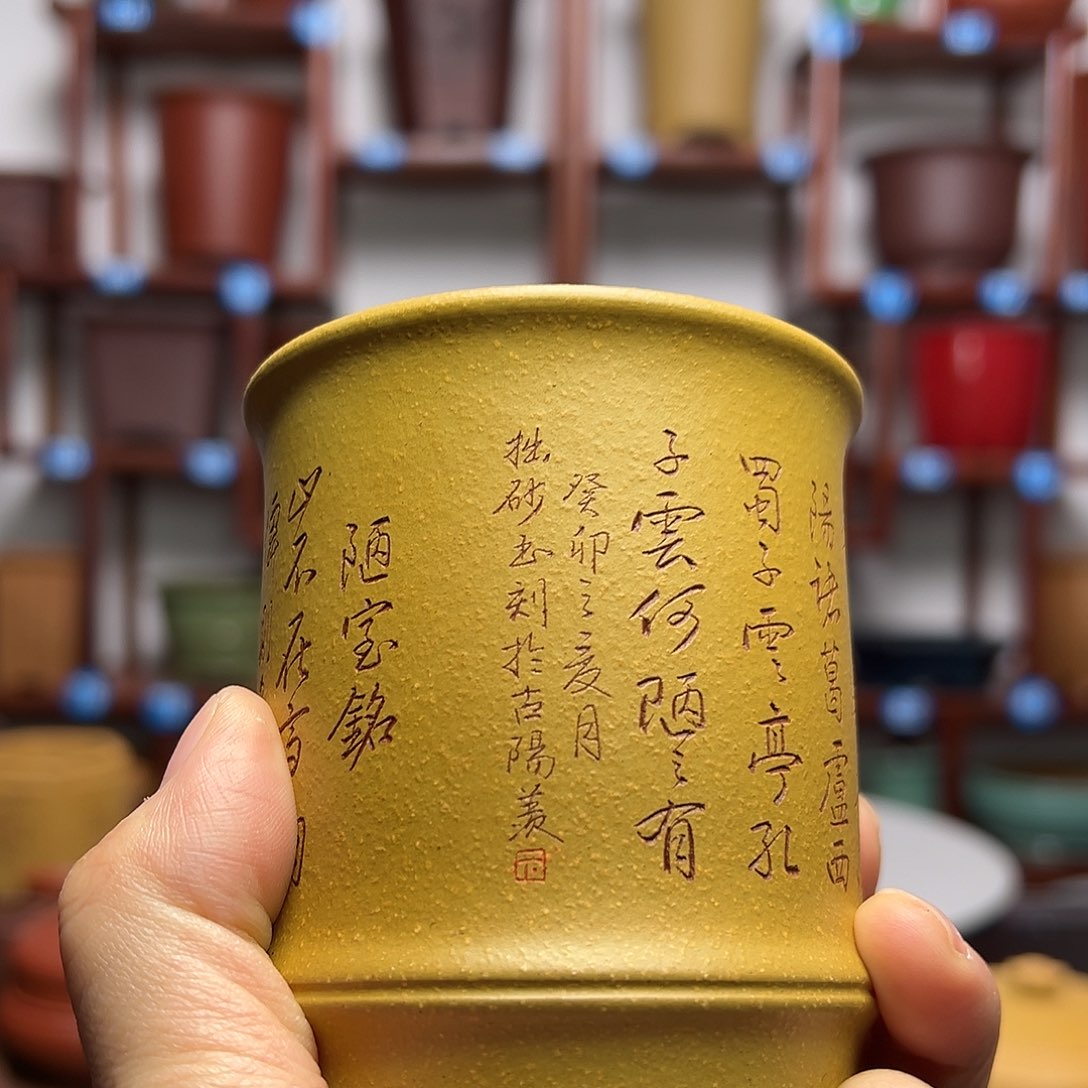 陽諸葛廬西
蜀子雲亭孔
子雲何陋之有
癸卯之夏月
拙砂書刻於古陽羨
陋室銘
山不在高